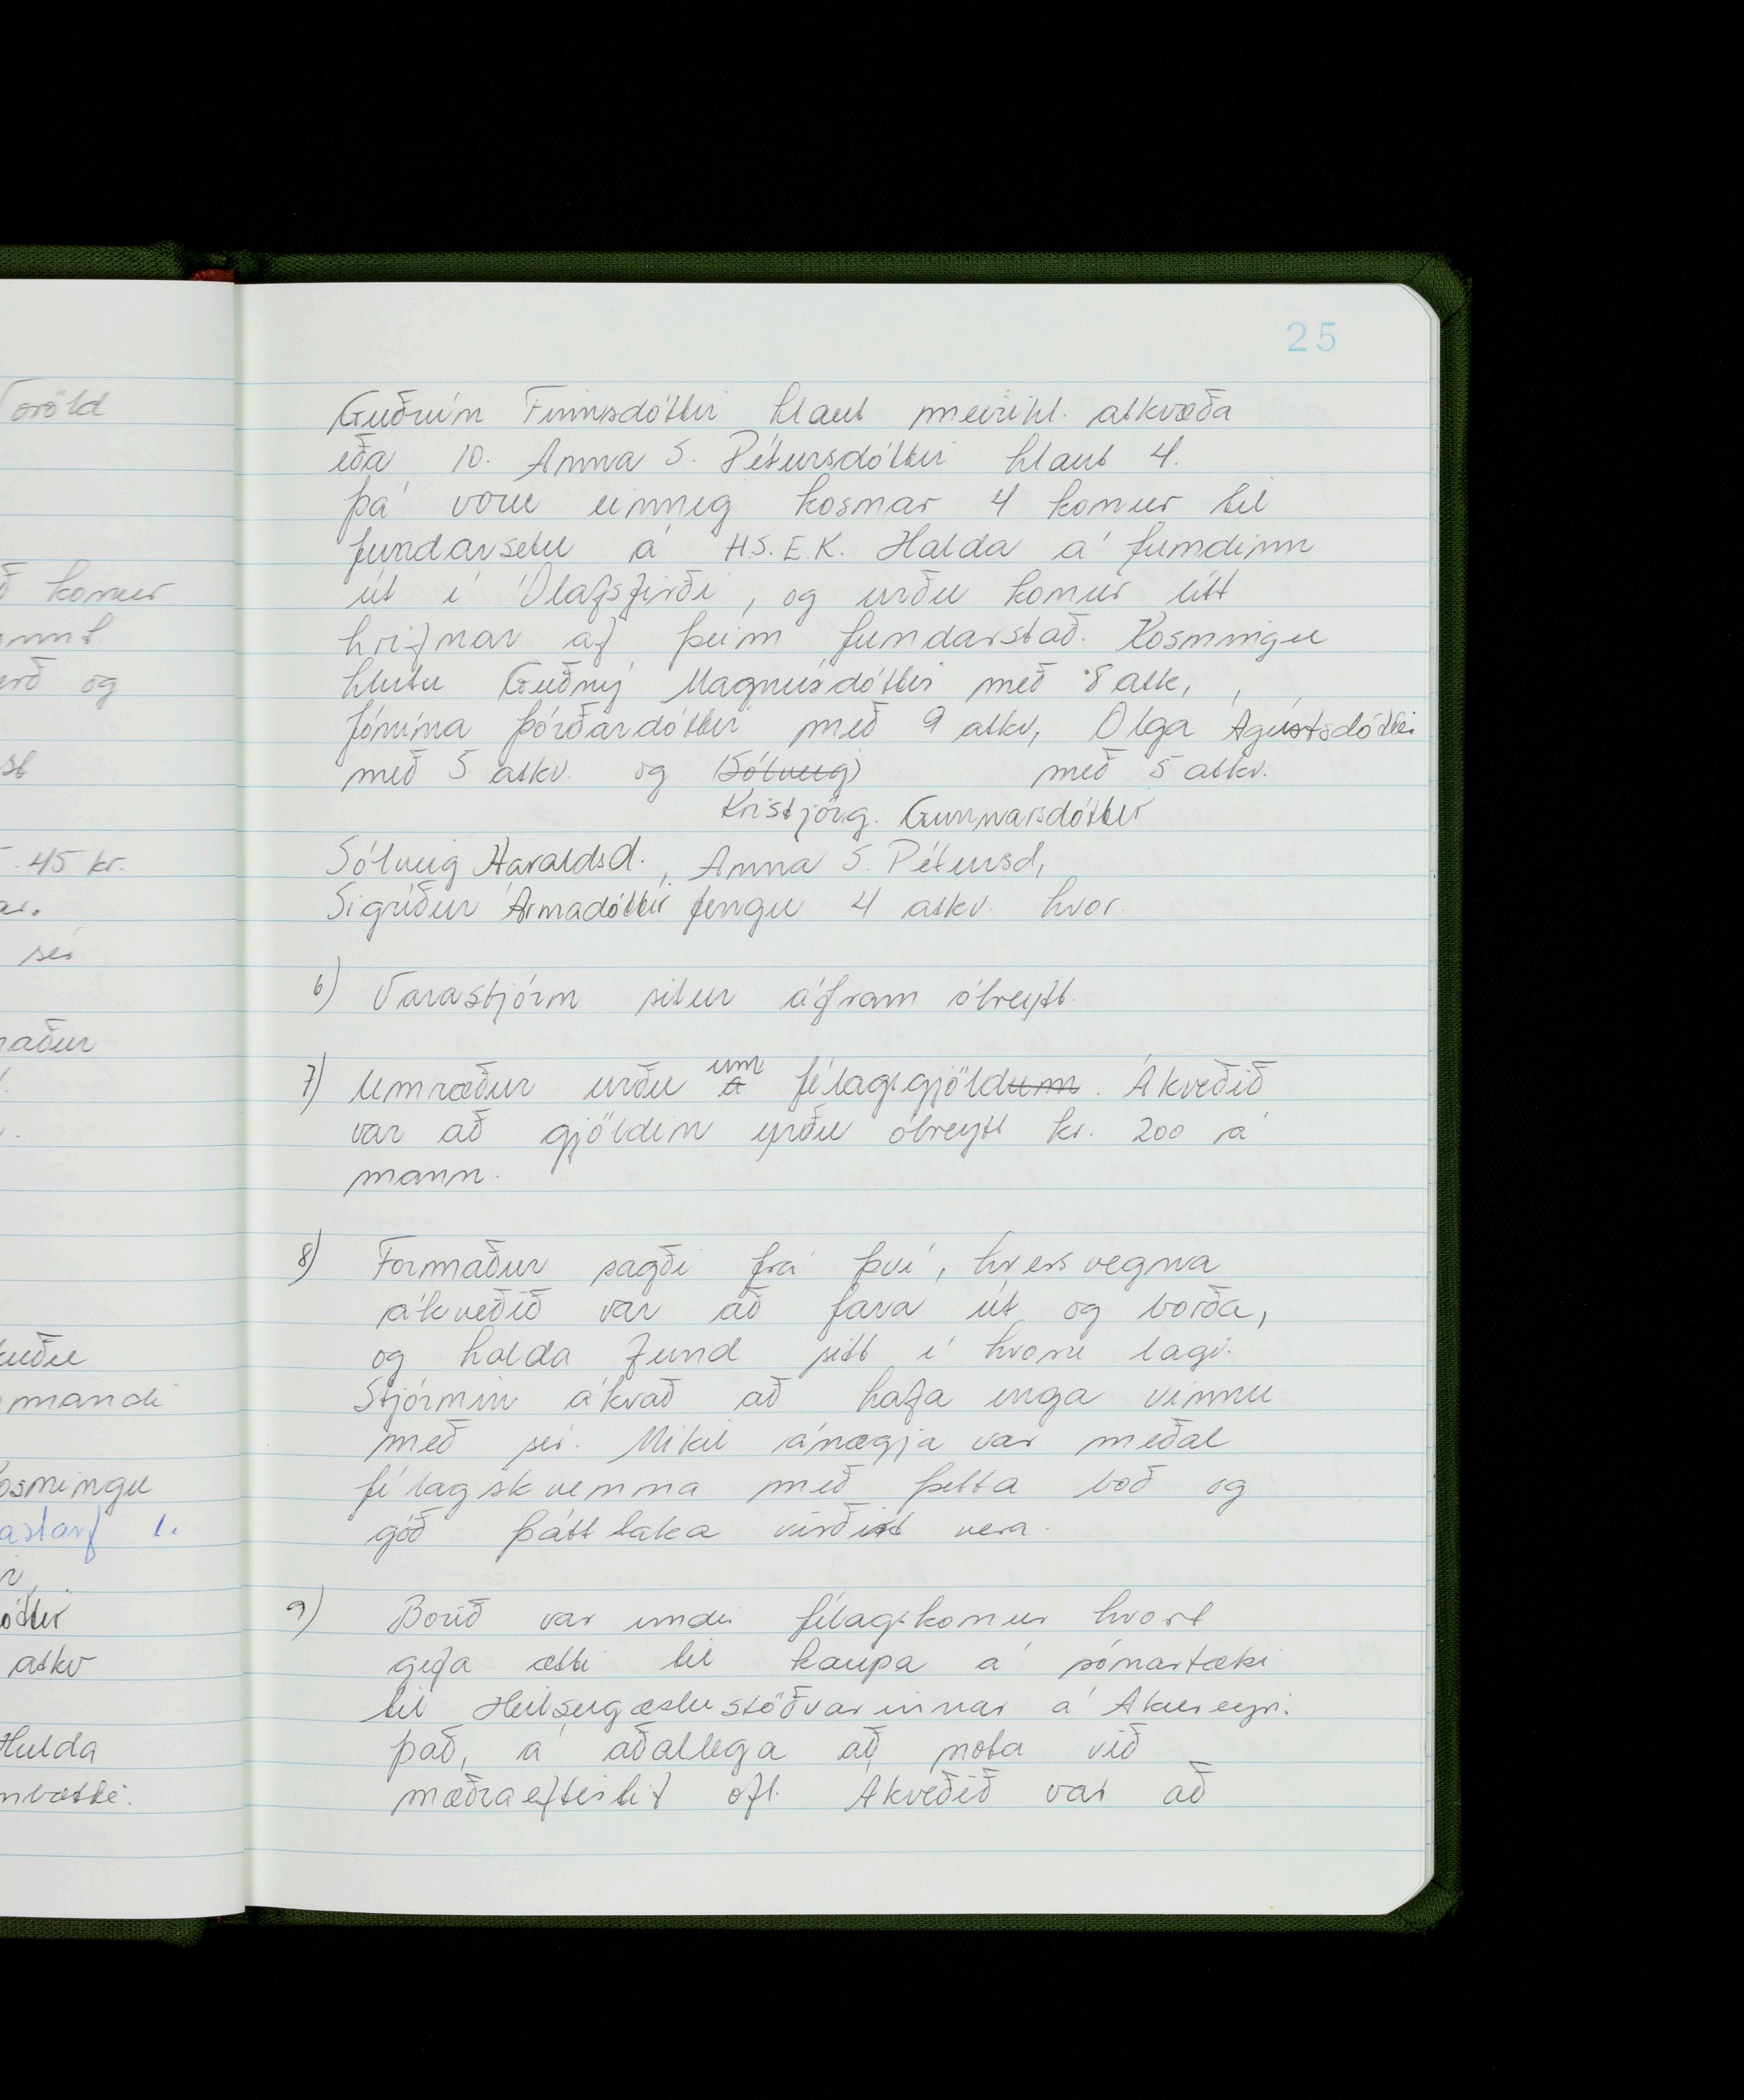 25
Guðrún Finnsdóttir hlaut meirihl. atkvæða
eða 10. Anna S. Pétursdóttir hlaut 4.
Þá voru einnig kosnar 4 konur til
fundarsetu á H.S.E.K. Halda á fundinn
út í Ólafsfirði, og urðu konur lítt
hrifnar af þeim fundarstað. Kosningu
hlutu Guðný Magnúsdóttir með 8 atk,
Jónína Þórðardóttir með 9 atkv, Olga Ágústsdóttir
með 5 atkv. og (Sólveig) með 5 atkv.
Kristjörg. Gunnarsdóttir
Sólveig Haraldsd., Anna S. Pétursd,
Sigríður Árnadóttir fengu 4 atkv. hvor.
6) Varastjórn situr áfram óbreytt.
um
7) Umræður urðu a félagsgjöldum. Ákveðið
var að gjöldin yrðu óbreytt kr. 200 á
mann.
8) Formaður sagði frá því, hvers vegna
ákveðið var að fara út og borða,
og halda fund sitt í hvoru lagi.
Stjórnin ákvað að hafa enga vinnu
með sér. Mikil ánægja var meðal
félagskvenna með þetta boð og
góð þátttaka virðist vera.
9) Borið var undir félagskonur hvort
gefa ætti til kaupa á sónartæki
til Heilsugæslustöðvarinnar á Akureyri.
það, á aðallega að nota við
mæðraeftirlit ofl. Ákveðið var að
oröld
konur
og
45 kr.
sér
maður
mandi
osningu
astarf 1.
óttir
atkv
Hulda
mbætti.